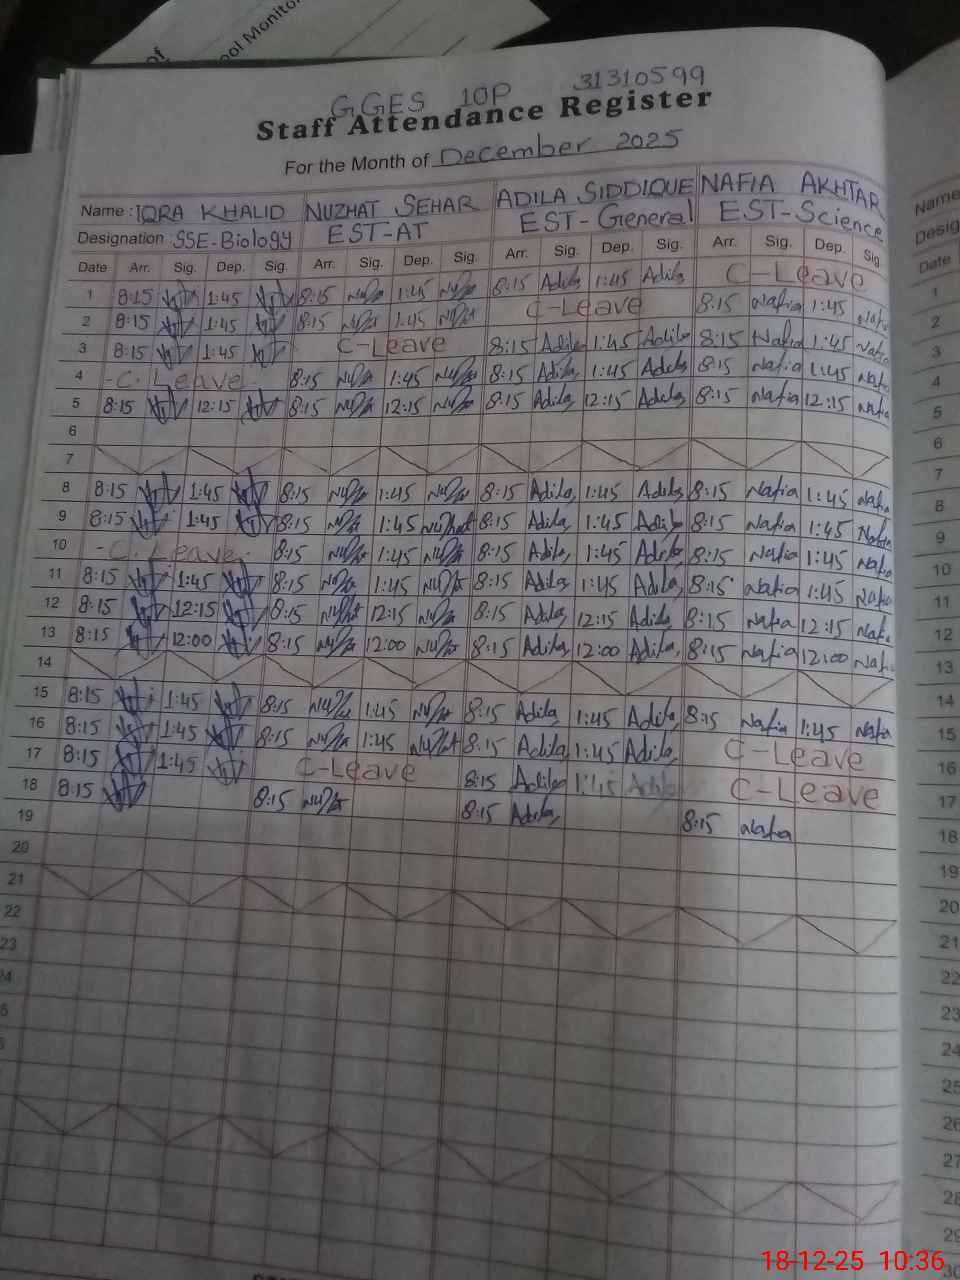 of
ool Monito
GGES 10P 31310599
Staff Attendance Register
For the Month of December 2025
Name : IQRA KHALID NUZHAT SEHAR ADILA SIDDIQUE NAFIA AKHTAR
Designation : SSE-Biology EST-AT EST-General EST-Science
Date Arr. Sig. Dep. Sig. Arr. Sig. Dep. Sig. Arr. Sig. Dep. Sig. Arr. Sig. Dep. Sig.
1 8:15 1:45 8:15 1:45 8:15 Adila 1:45 Adila C-Leave
2 8:15 1:45 8:15 1:45 C-Leave 8:15 Nafia 1:45 Nafia
3 8:15 1:45 C-Leave 8:15 Adila 1:45 Adila 8:15 Nafia 1:45 Nafia
4 -C. Leave- 8:15 1:45 8:15 Adila 1:45 Adila 8:15 Nafia 1:45 Nafia
5 8:15 12:15 8:15 12:15 8:15 Adila 12:15 Adila 8:15 Nafia 12:15 Nafia
6
7
8 8:15 1:45 8:15 1:45 8:15 Adila 1:45 Adila 8:15 Nafia 1:45 Nafia
9 8:15 1:45 8:15 1:45 Nuzhat 8:15 Adila 1:45 Adila 8:15 Nafia 1:45 Nafia
10 -C. Leave- 8:15 1:45 8:15 Adila 1:45 Adila 8:15 Nafia 1:45 Nafia
11 8:15 1:45 8:15 1:45 8:15 Adila 1:45 Adila 8:15 Nafia 1:45 Nafia
12 8:15 12:15 8:15 12:15 8:15 Adila 12:15 Adila 8:15 Nafia 12:15 Nafia
13 8:15 12:00 8:15 12:00 8:15 Adila 12:00 Adila 8:15 Nafia 12:00 Nafia
14
15 8:15 1:45 8:15 1:45 8:15 Adila 1:45 Adila 8:15 Nafia 1:45 Nafia
16 8:15 1:45 8:15 1:45 8:15 Adila 1:45 Adila C-Leave
17 8:15 1:45 C-Leave 8:15 Adila 1:45 Adila C-Leave
18 8:15 8:15 8:15 Adila 8:15 Nafia
19
20
21
22
23
24
Name
Desig
Date
1
2
3
4
5
6
7
8
9
10
11
12
13
14
15
16
17
18
19
20
21
22
23
24
25
26
27
28
29
30
18-12-25 10:36